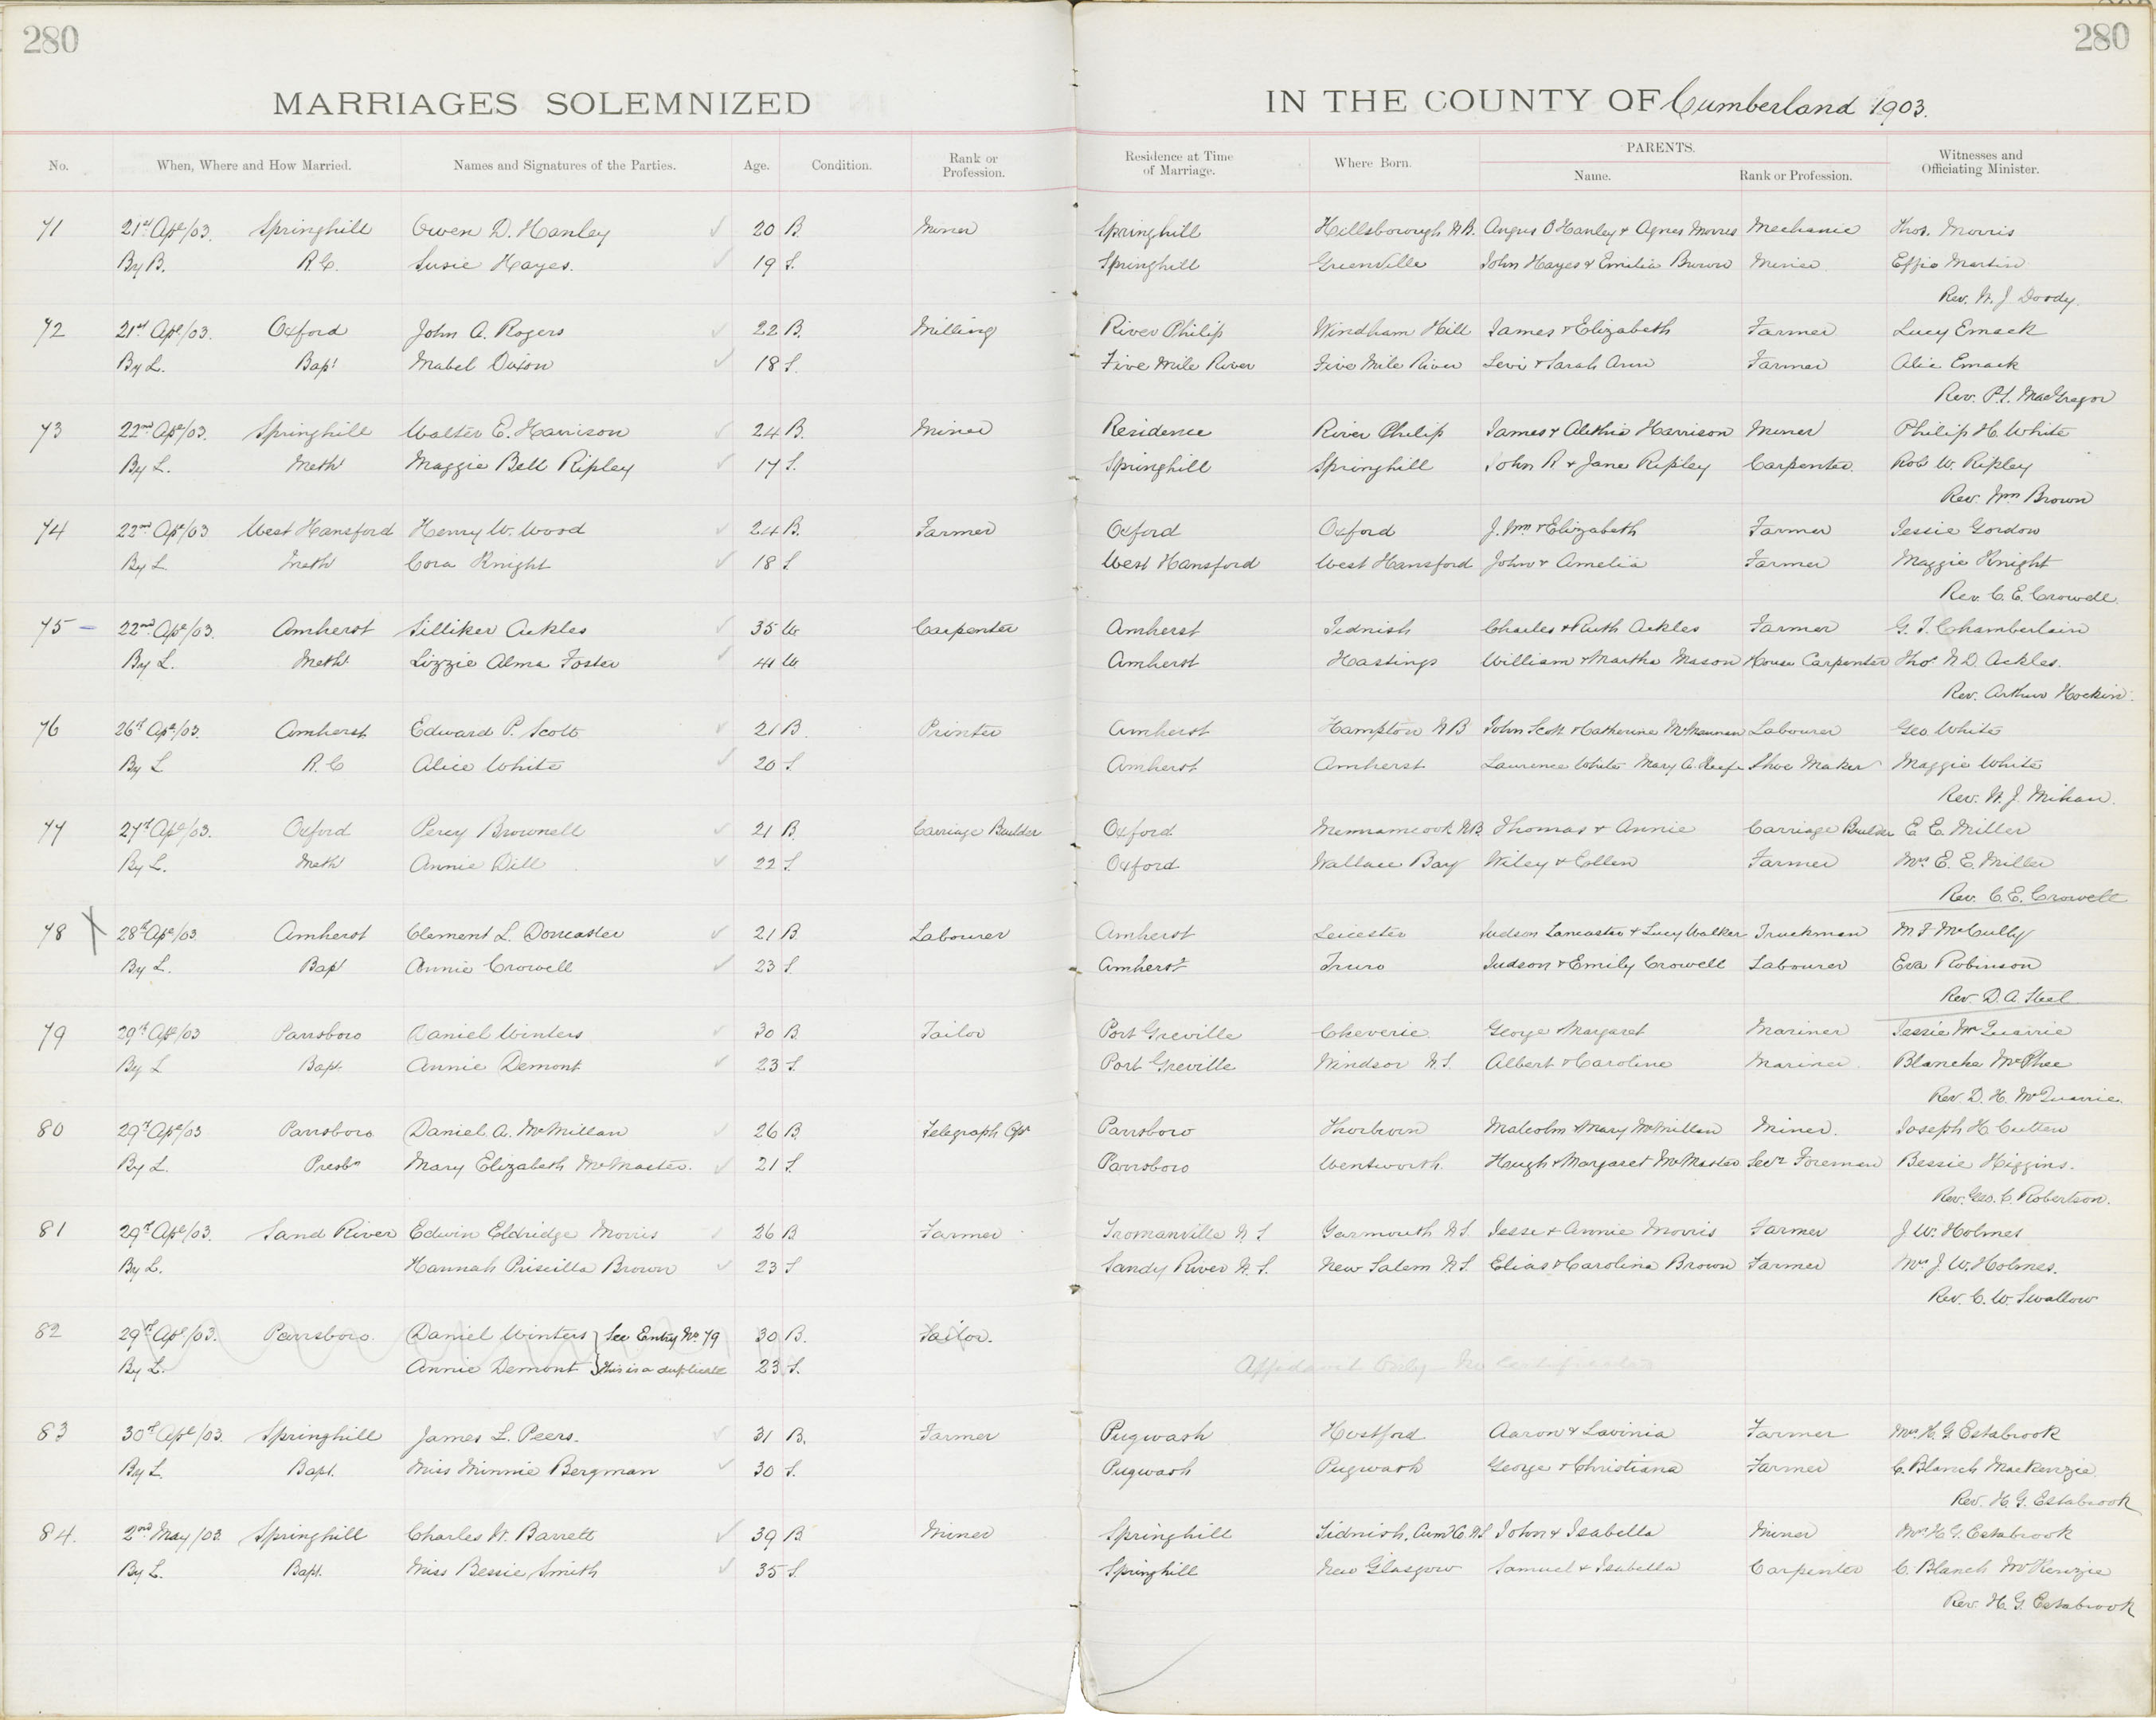 280
280
MARRIAGES SOLEMNIZED
IN THE COUNTY OF Cumberland 1903.
No. When, Where and How Married. Names and Signatures of the Parties. Age. Condition. Rank or Profession. Residence at Time of Marriage. Where Born. PARENTS. Name. Rank or Profession. Witnesses and Officiating Minister.
71 21st Apl/03. Springhill Owen D. Hanley 20 B. Miner Springhill Hillsborough N.B. Angus O Hanley & Agnes Morris Mechanic Thos. Morris
By B. R.C. Susie Hayes. 19 S. Springhill Greenville John Hayes & Emilia Brown Miner Effie Martin
Rev. W. J. Doody.
72 21st Apl/03. Oxford John A. Rogers 22 B. Milling River Philip Windham Hill James & Elizabeth Farmer Lucy Emack
By L. Bapt Mabel Dixon 18 S. Five Mile River Five Mile River Levi & Sarah Ann Farmer Alic Emack
Rev. P.S. MacGregor
73 22nd Apl/03. Springhill Walter E. Harrison 24 B. Miner Residence River Philip James & Alethia Harrison Miner Philip H. White
By L. Meth Maggie Bell Ripley 17 S. Springhill Springhill John R & Jane Ripley Carpenter. Rob W. Ripley
Rev. Wm Brown
74 22nd Apl/03 West Hansford Henry W. Wood 24 B. Farmer Oxford Oxford J. Wm & Elizabeth Farmer Jessie Gordon
By L. Meth Cora Knight 18 S. West Hansford West Hansford John & Amelia Farmer Maggie Knight
Rev. C. E. Crowell.
75 – 22nd Apl/03. Amherst Silliker Ackles 35 W Carpenter Amherst Tidnish Charles & Ruth Ackles Farmer G. F. Chamberlain
By L. Meth. Lizzie Alma Foster 41 W Amherst Hastings William & Martha Mason House Carpenter Thos. N. D. Ackles.
Rev. Arthur Hockin.
76 26th Apl/03. Amherst Edward P. Scott 21 B. Printer Amherst Hampton N B John Scott & Catherine Labourer Geo White
By L R.C Alice White 20 S. Amherst Amherst Laurence White Mary A. Keefe Shoe Maker Maggie White
Rev. W. J. Mihan.
77 27th Apl/03. Oxford Percy Brownell 21 B. Carriage Builder Oxford Memramcook N.B. Thomas & Annie Carriage Builder E. E. Miller
By L. Meth Annie Dill 22 S. Oxford Wallace Bay Wiley & Ellen Farmer Mrs. E. E. Miller
Rev. C. E. Crowell
78 X 28th Apl/03 Amherst Clement L. Doncaster 21 B. Labourer Amherst Leicester Judson Lancaster & Lucy Walker Truckman M F McCully
By L. Bapt Annie Crowell 23 S. Amherst Truro Judson & Emily Crowell Labourer Eva Robinson
Rev. D. A. Steel
79 29th Apl/03 Parrsboro Daniel Winters 30 B. Tailor Port Greville Cheverie. George & Margaret Mariner Jessie McQuarrie
By L Bapt. Annie Demont 23 S. Port Greville Windsor N.S. Albert & Caroline Mariner. Blanche McPhee
Rev. D. H. McQuarrie.
80 29th Apl/03 Parrsboro Daniel A. McMillan 26 B. Telegraph Opr Parrsboro Thorburn Malcolm & Mary McMillan Miner. Joseph H. Cutten
By L. Presbn Mary Elizabeth McMaster. 21 S. Parrsboro Wentworth. Hough & Margaret McMaster Secn Foreman Bessie Higgins.
Rev. Geo. C. Robertson.
81 29th Apl/03. Sand River Edwin Eldridge Morris 26 B Farmer N S Yarmouth N.S. Jesse & Annie Morris Farmer J W. Holmes
By L. Hannah Priscilla Brown 23 S Sandy River N.S. New Salem N.S. Elias & Carolina Brown Farmer Mrs J. W. Holmes.
Rev. C. W. Swallow
82 29th Apl/03. Parrsboro. Daniel Winters } See Entry No. 79 30 B. Tailor.
By L. Annie Demont } This is a duplicate 23 S. Affadavit Only No Certificate
83 30th Apl/03. Springhill James L. Peers. 31 B. Farmer Pugwash Hartford Aaron & Lavinia Farmer Mrs. H. G. Estabrook
By L. Bapt. Miss Minnie Bergman 30 S. Pugwash Pugwash George & Christiana Farmer C. Blanch MacKenzie.
Rev. H. G. Estabrook
84. 2nd May/03. Springhill Charles W. Barrett 39 B. Miner Springhill Tidnish, Cum. Co. N.S John & Isabella Miner Mrs. H. G. Estabrook
By L. Bapt. Miss Bessie Smith 35 S. Springhill New Glasgow Samuel & Isabella Carpenter C. Blanch McKenzie
Rev. H. G. Estabrook